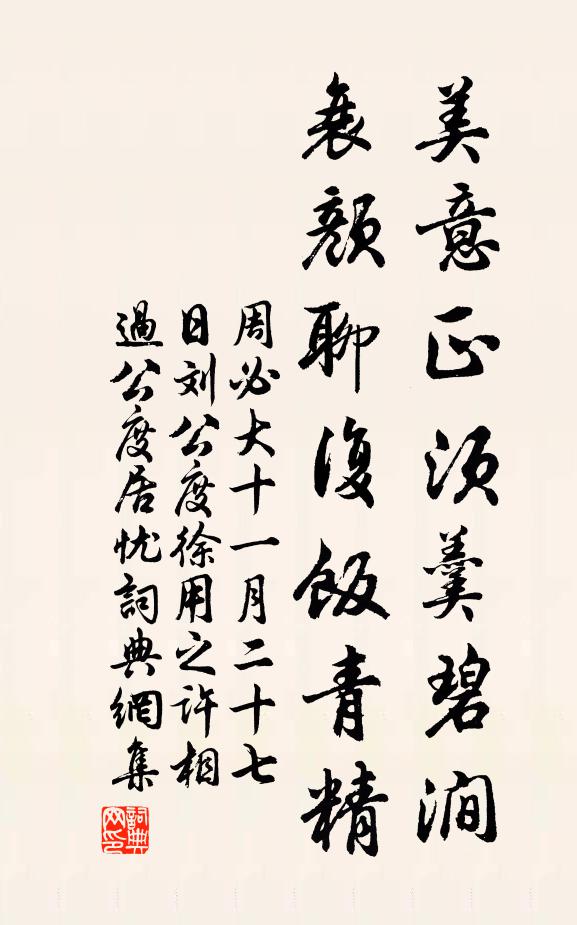 美意正須羹碧澗
衰顏聊復飯青精
周必大十一月二十七
日刘公度徐用之許相
過公度居忧詞典網集
詞典網印